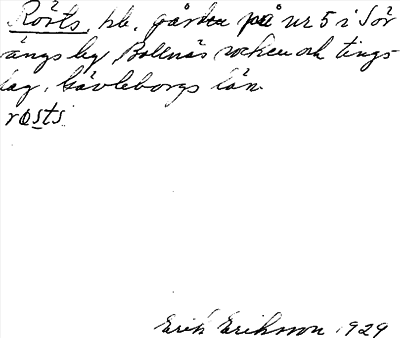 Rösts, hb, gården på nr 5 i Sör
ängs by, Bollnäs socken och tings-
lag, Gävleborgs län.
rösts
Erik Eriksson 1929